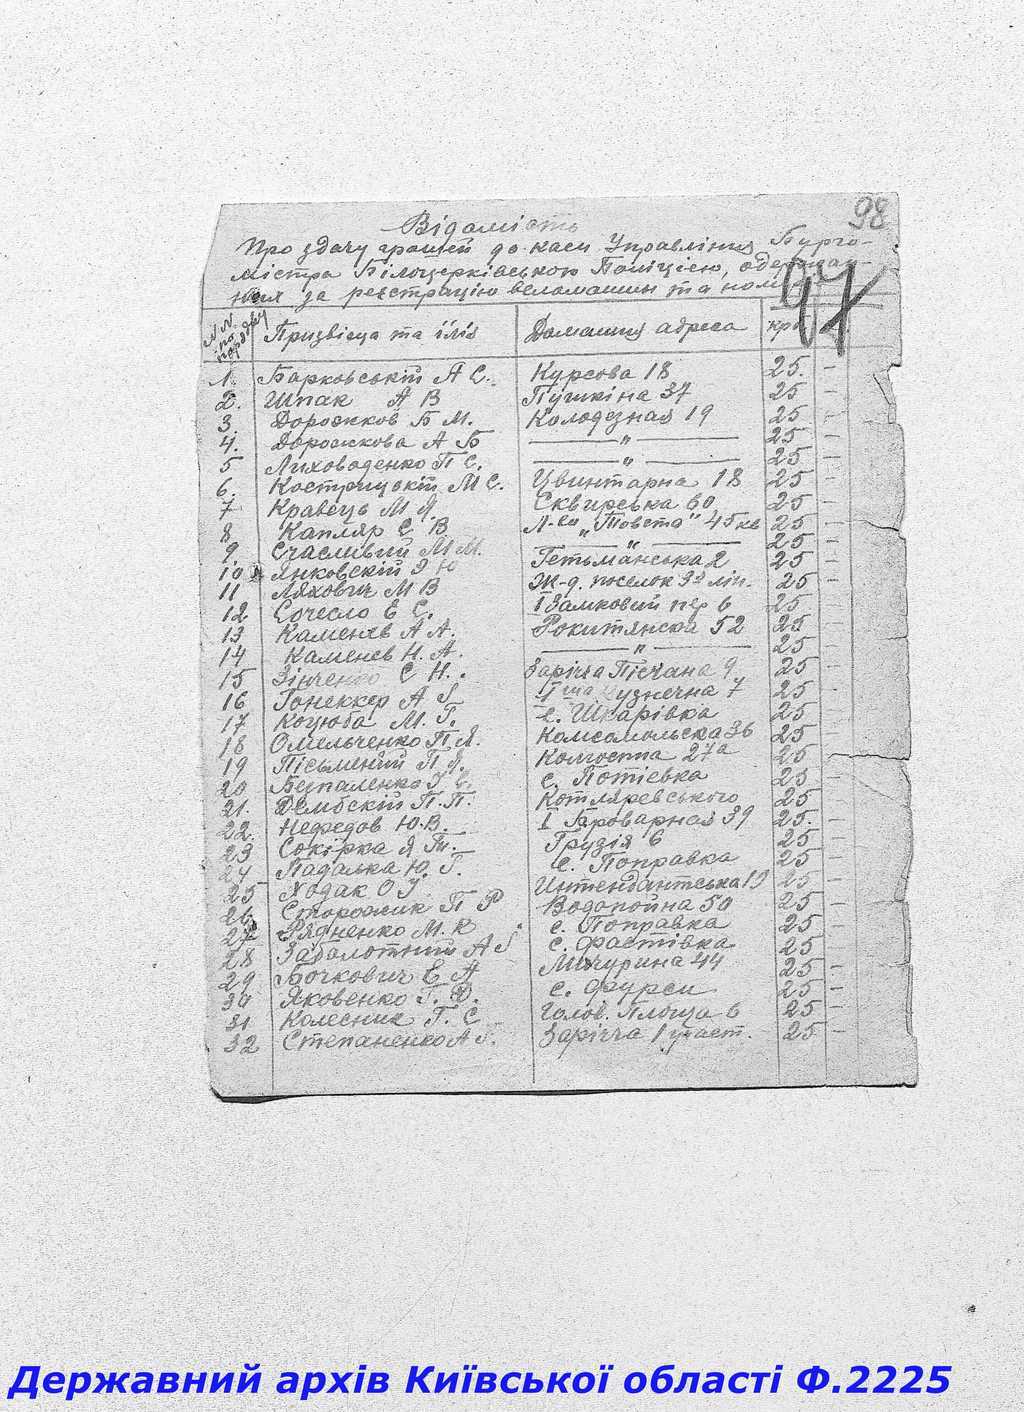 98
Відомість
Про здачу грошей до каси Управління Бурго-
містра Білоцерківською Поліцією, одержан-
них за реєстрацію веломашин та ном
97
N N по порядку Призвіща та їмя Домашня адреса крб
1. Барковській А С. Курсова 18 25. —
2. Шпак А В Пушкіна 37 25 —
3. Дорожков Б М. Колодезная 19 25 —
4. Дорожкова А Б —— " —— 25 —
5 Лиховоденко П С. —— " —— 25 —
6. Кострицькій М С. Цвинтарна 18 25 —
7 Кравець М Я. Сквирська 60 25 —
8 Капляр С В Л-ва „Товста" 45 кв 25 —
9. Счасливий М М. —— " —— 25 —
10 Янковскій Э Ю Гетьманська 2 25 —
11 Ляхович М В Ж-д. поселок 33 лін. 25 —
12 Сочесло Е С. I Замковий пер 6 25 —
13 Каменєв А А. Рокитянська 52 25 —
14 Каменєв Н. А. —— " —— 25 —
15 Зінченко С Н. Зарічья Пісчана 9 25 —
16 Гонеккер А I ша Кузнечна 7 25 —
17 Коцюба М. Г. с. Шкарівка 25 —
18 Омельченко П Я. Комсомольска 36 25 —
19 Пісьменій П Я. Комгоспа 27а 25 —
20 Безпаленко с. Потієвка 25 —
21. Дембскій П. П. Котляревського 25 —
22. Нефедов Ю. В. I Гароварная 39 25. —
23 Сокірка Я Грузія 6 25 —
24 Падалка Ю. Г. с. Поправка 25 —
25 Ходак О У Интендантська 19 25 —
26. Сторожик П Р Водопойна 50 25 —
27 Рядненко М. К с. Поправка 25 —
28 Заболотній А с. Фастівка 25 —
29 Бочкович Е А Мичурина 44 25 —
30 Яковенко Г. Д. с. Фурси 25 —
31 Колесник Г. С Голов. Площа 6 25 —
32 Степаненко А Г. Зарічча 1 участ. 25 —
Державний архів Київської області Ф.2225